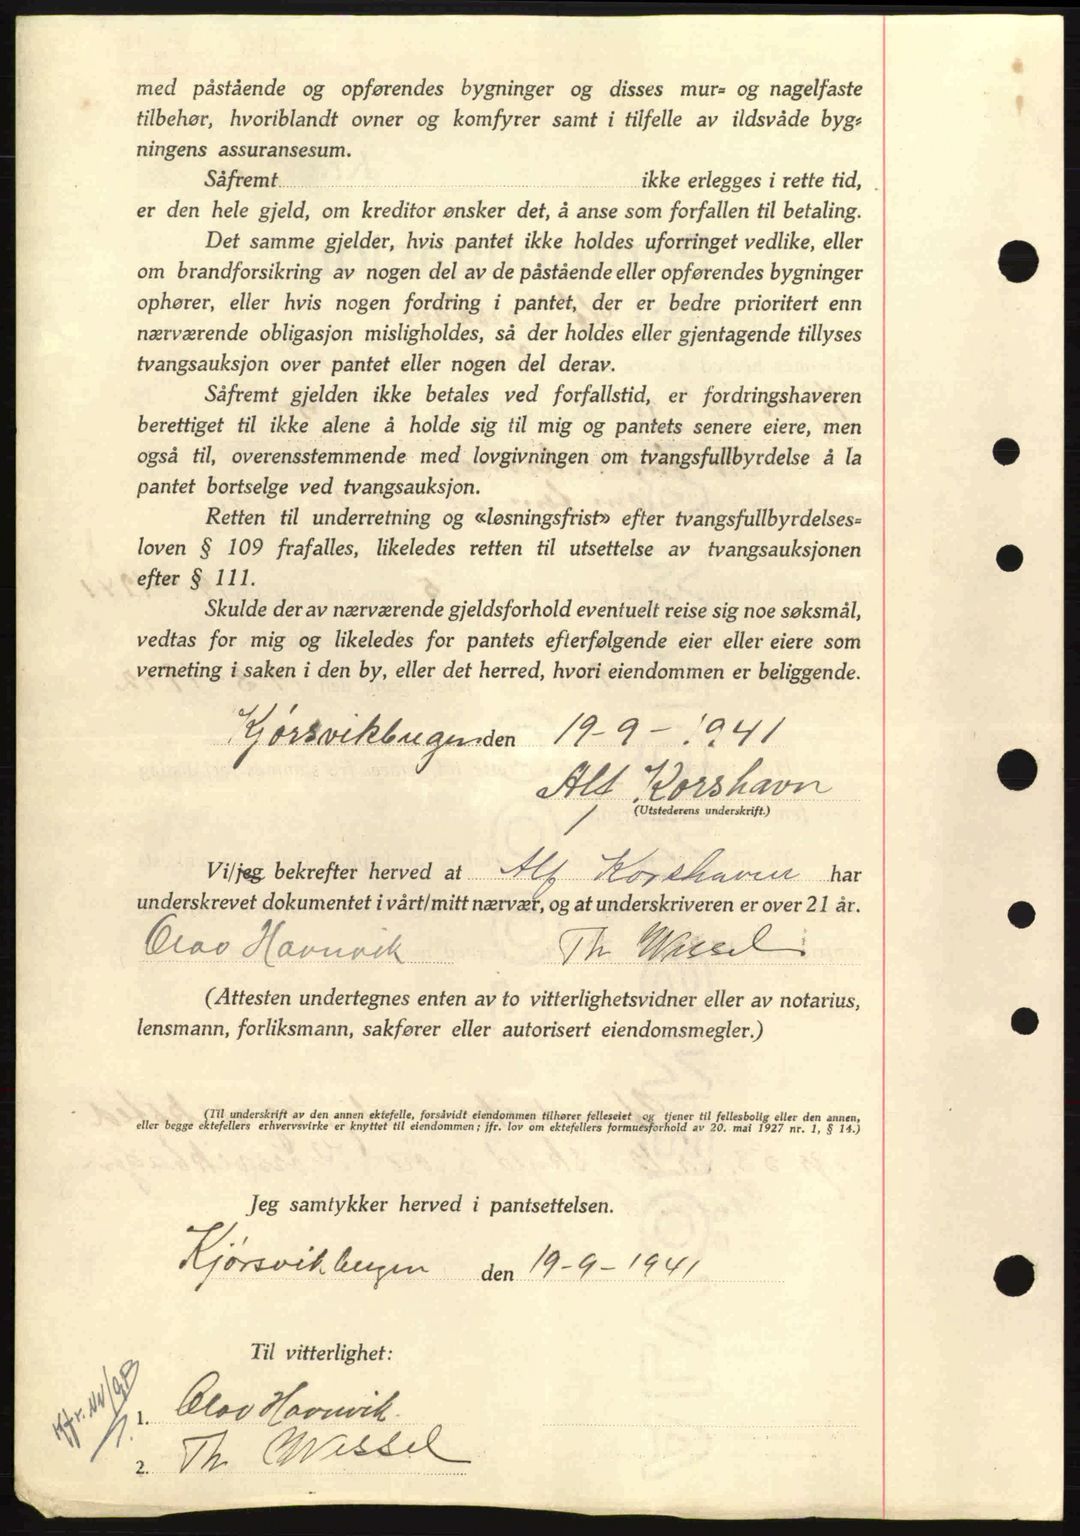 med påstående og opførendes bygninger og disses mur= og nagelfaste
tilbehør, hvoriblandt ovner og komfyrer samt i tilfelle av ildsvåde byg=
ningens assuransesum.
Såfremt ikke erlegges i rette tid,
er den hele gjeld, om kreditor ønsker det, å anse som forfallen til betaling.
Det samme gjelder, hvis pantet ikke holdes uforringet vedlike, eller
om brandforsikring av nogen del av de påstående eller opførendes bygninger
ophører, eller hvis nogen fordring i pantet, der er bedre prioritert enn
nærværende obligasjon misligholdes, så der holdes eller gjentagende tillyses
tvangsauksjon over pantet eller nogen del derav.
Såfremt gjelden ikke betales ved forfallstid, er fordringshaveren
berettiget til ikke alene å holde sig til mig og pantets senere eiere, men
også til, overensstemmende med lovgivningen om tvangsfullbyrdelse å la
pantet bortselge ved tvangsauksjon.
Retten til underretning og «løsningsfrist» efter tvangsfullbyrdelses=
loven § 109 frafalles, likeledes retten til utsettelse av tvangsauksjonen
efter § 111.
Skulde der av nærværende gjeldsforhold eventuelt reise sig noe søksmål,
vedtas for mig og likeledes for pantets efterfølgende eier eller eiere som
verneting i saken i den by, eller det herred, hvori eiendommen er beliggende.
Kjørsvikbugen den 19-9-1941
Alf Korshavn
(Utstederens underskrift.)
Vi/jeg bekrefter herved at Alf Korshavn har
underskrevet dokumentet i vårt/mitt nærvær, og at underskriveren er over 21 år.
Olav Havnvik Th Wessel
(Attesten undertegnes enten av to vitterlighetsvidner eller av notarius,
lensmann, forliksmann, sakfører eller autorisert eiendomsmegler.)
(Til underskrift av den annen ektefelle, forsåvidt eiendommen tilhører felleseiet og tjener til fellesbolig eller den annen,
eller begge ektefellers erhvervsvirke er knyttet til eiendommen; jfr. lov om ektefellers formuesforhold av 20. mai 1927 nr. 1, § 14.)
Jeg samtykker herved i pantsettelsen.
Kjørsvikbugen den 19-9-1941
Til vitterlighet:
1. Olav Havnvik
2. Th Wessel